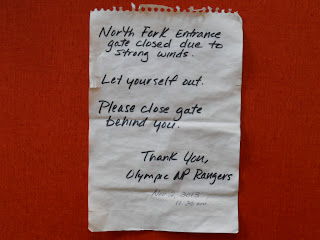 North Fork Entrance
gate closed due to
strong winds.
Let yourself out.
Please close gate
behind you.
Thank You,
Olympic NP Rangers
2013